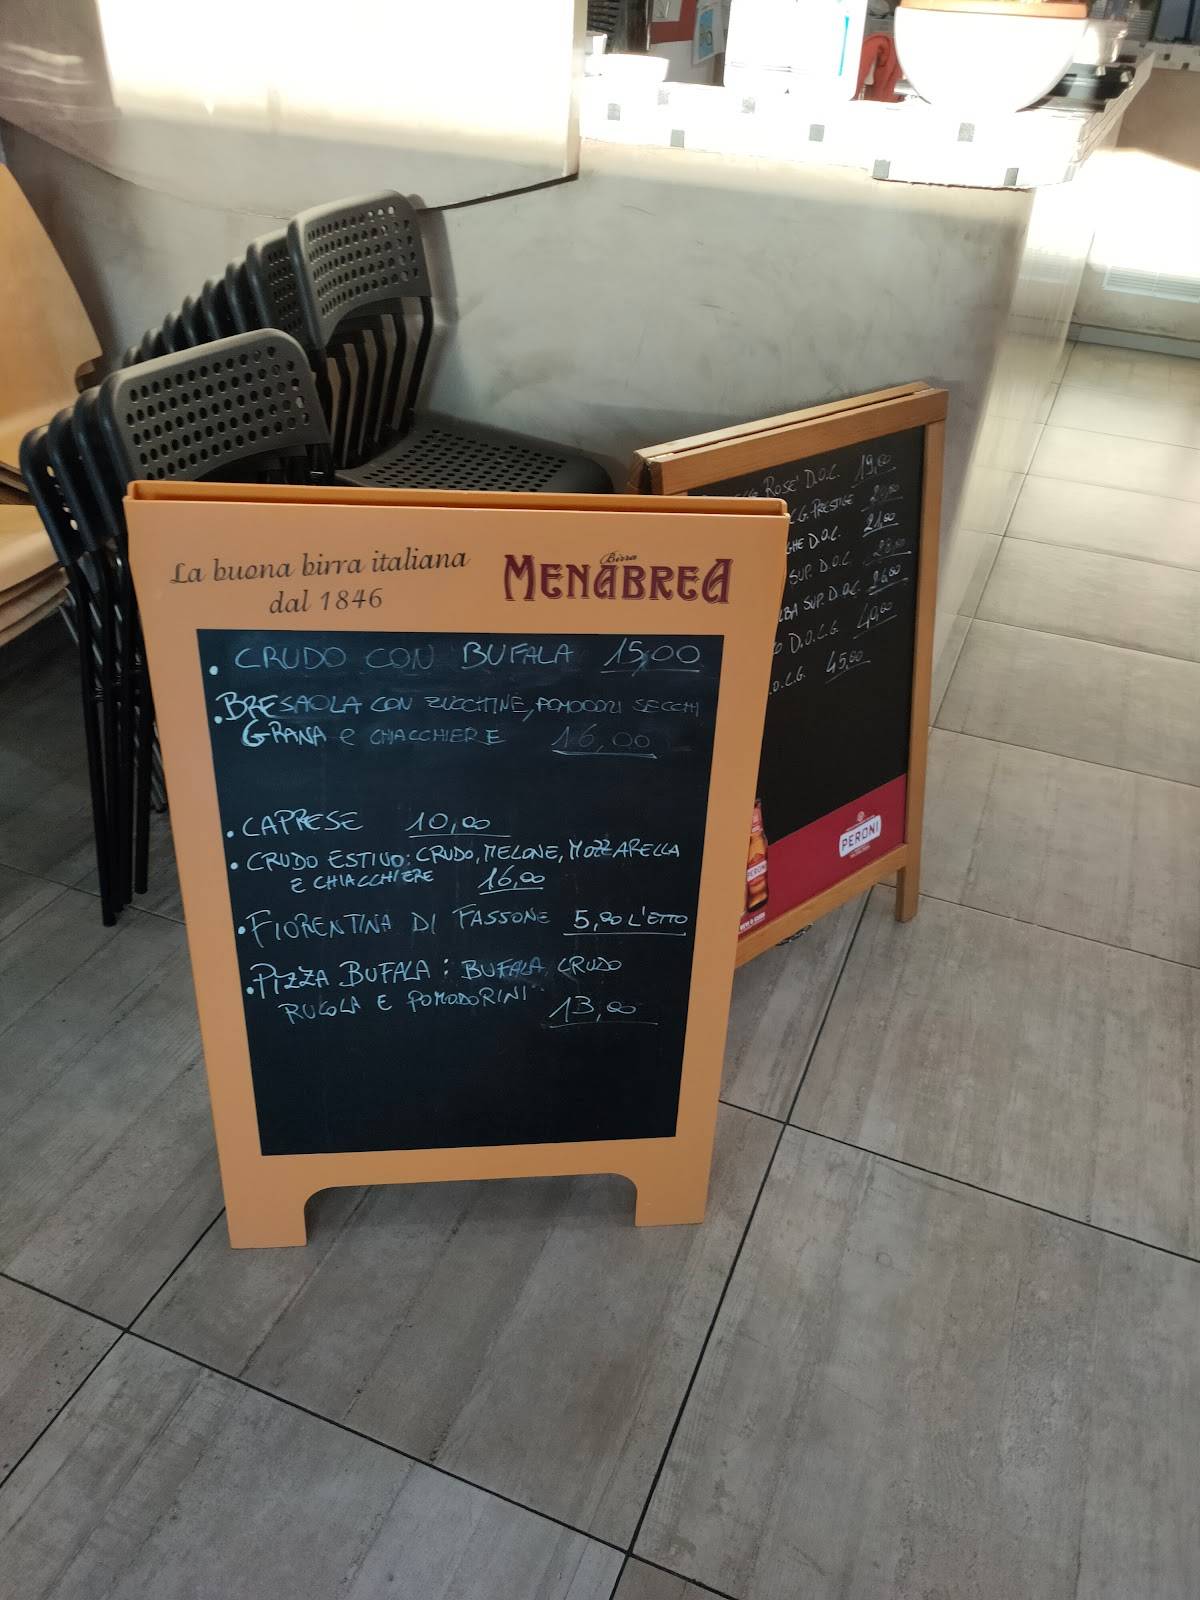 La buona birra italiana
dal 1846
Birra
MENABREA
• CRUDO CON BUFALA 15,00
• BRESAOLA CON ZUCCHINE, POMODORI SECCHI
GRANA e CHIACCHIERE 16,00
• CAPRESE 10,00
• CRUDO ESTIVO: CRUDO, MELONE, MOZZARELLA
E CHIACCHIERE 16,00
• FIORENTINA DI FASSONE 5,00 L'ETTO
• PIZZA BUFALA: BUFALA, CRUDO
RUCOLA E POMODORINI 13,00
ROSE' D.O.C. 19,00
C.G. PRESTIGE
GHE D.O.C. 21,00
SUP. D.O.C. 28,00
LBA SUP. D.O.C. 26,00
O D.O.C.G. 40,00
.O.C.G. 45,00
PERONI
PERONI